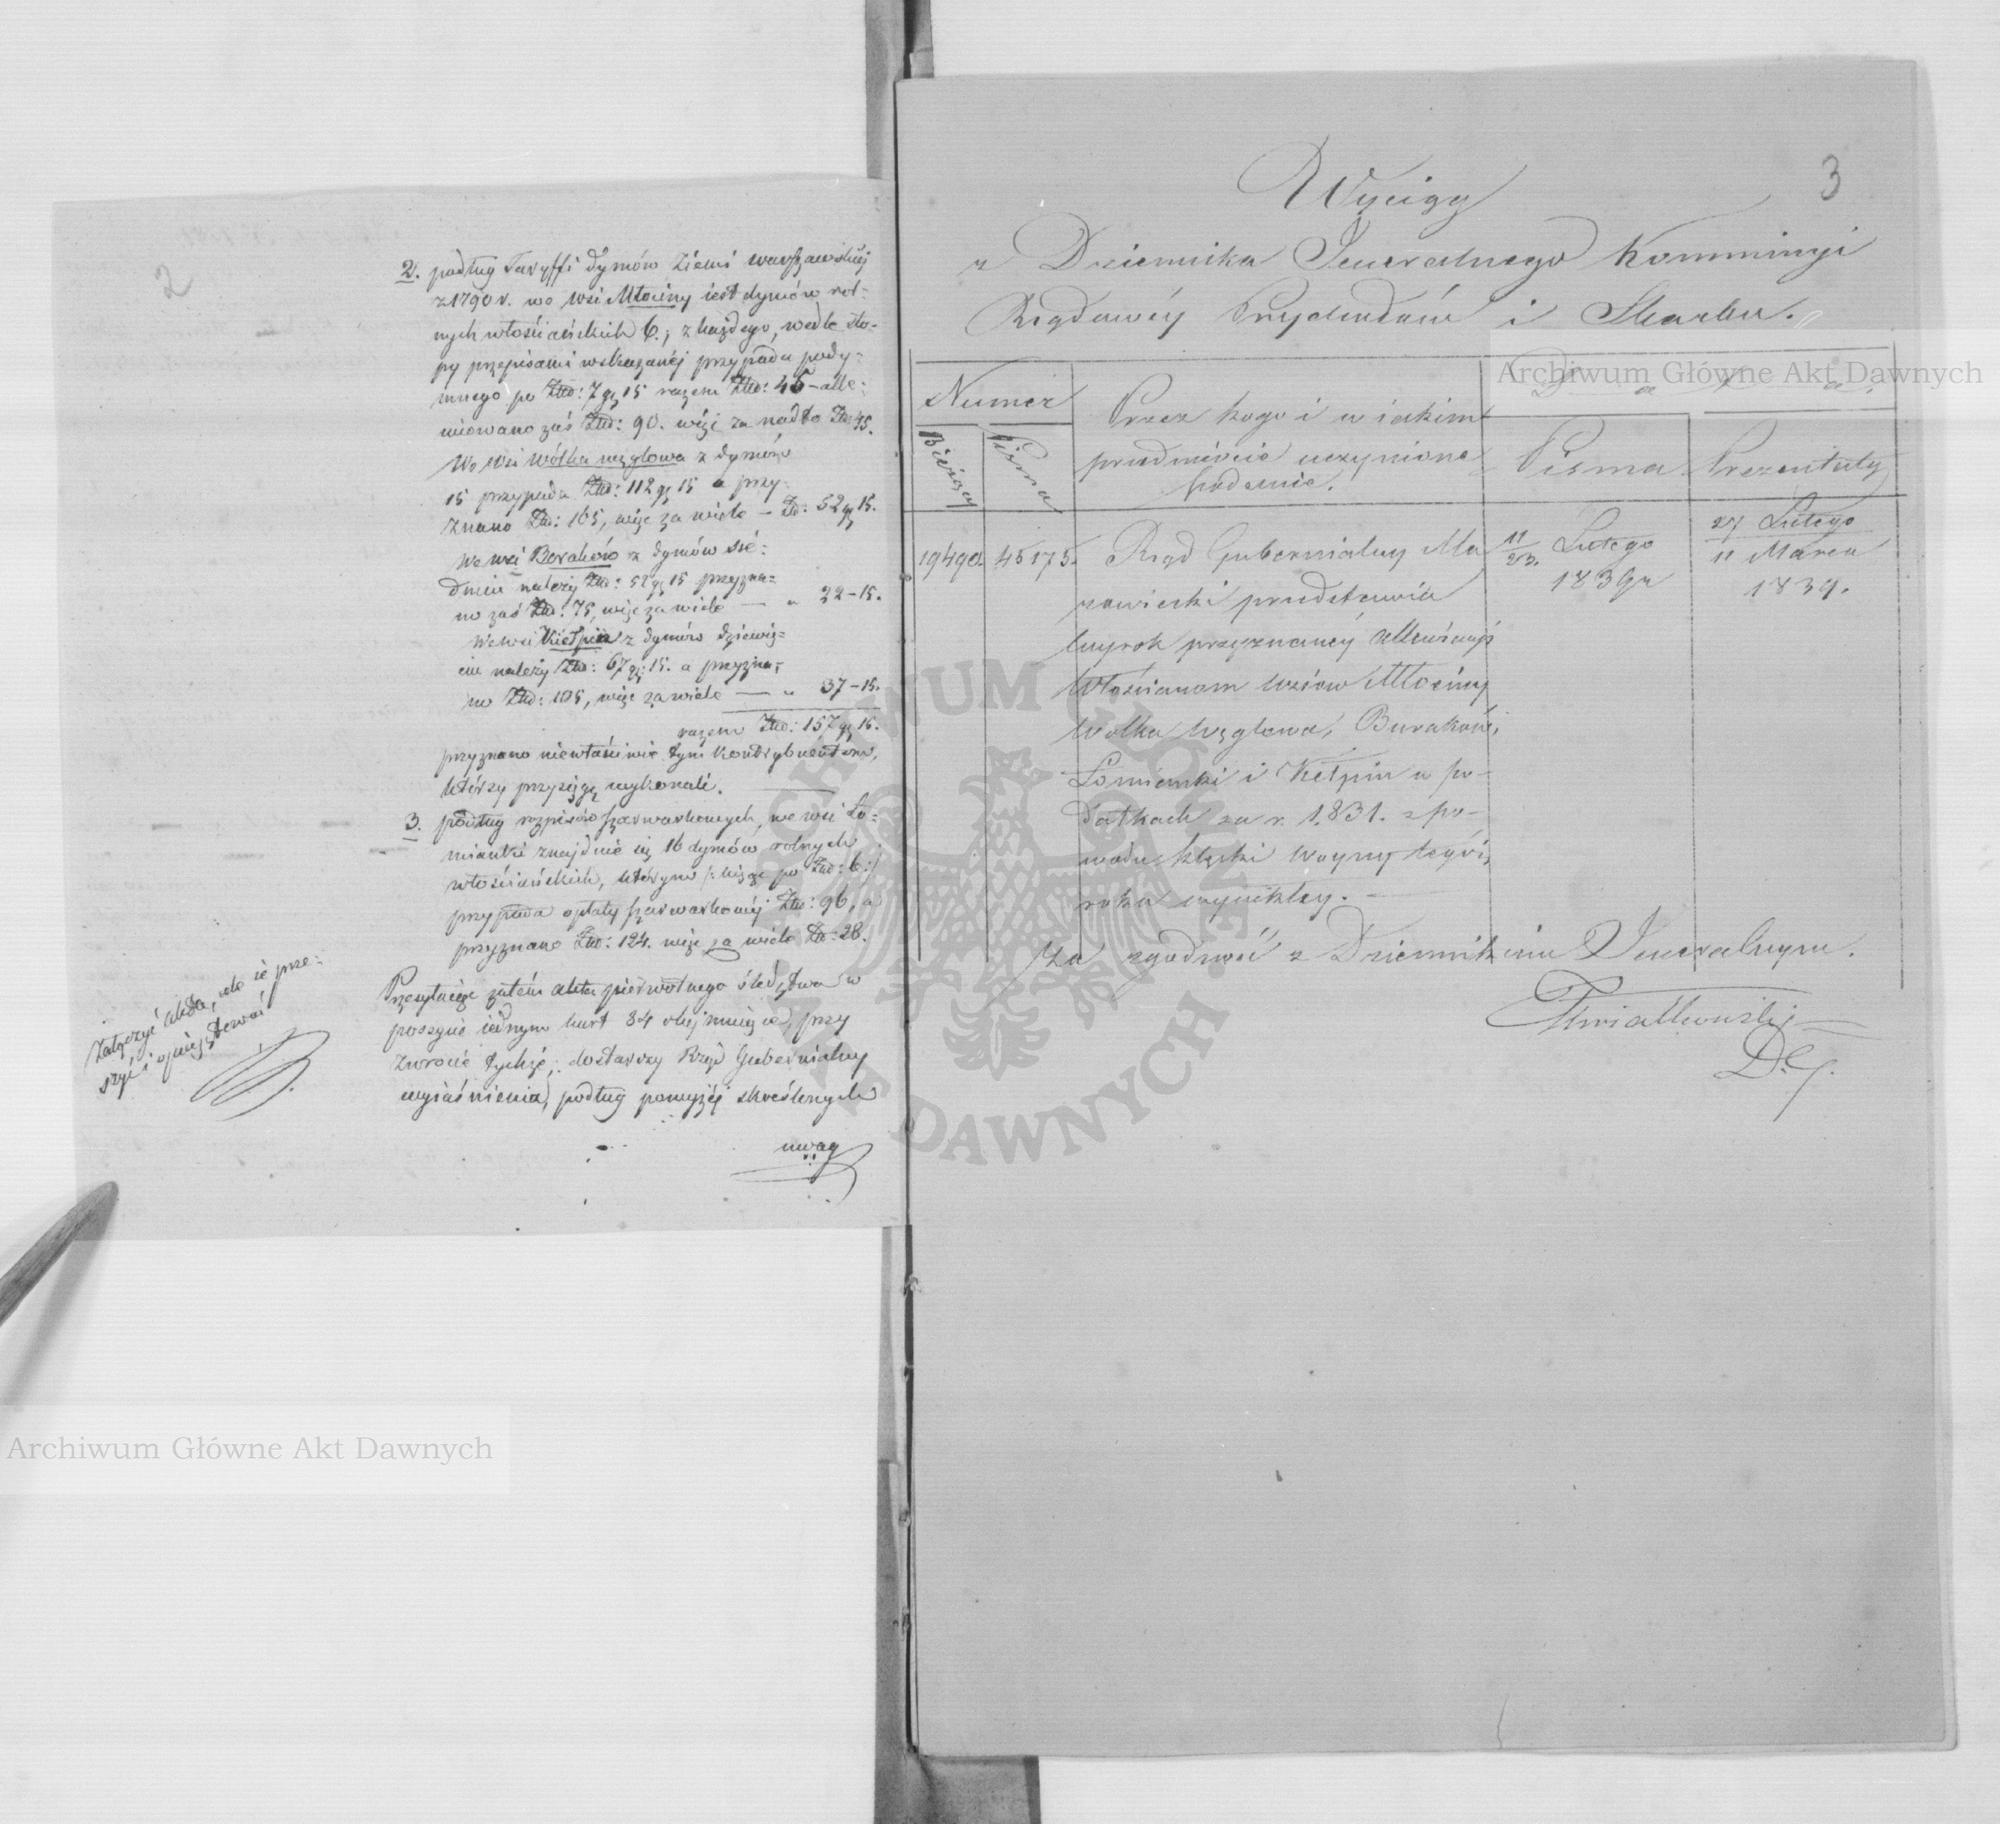 2
2. podług Taryffi dymów Ziemi warszawskiéj
z 1790 r. we wsi Młociny iest dymów rol-
nych włościańskich 6.; z każdego, wedle sto-
py przepisami wskazanéj przypada pody-
mnego po Złł: 7 gr 15 razem Złł: 45 - alle-
wiowano zaś Złł: 90. więc za nadto Złł: 45.
We wsi Wólka węglowa z dymów
15 przypada Złł: 112 gr 15 a przy-
znano Złł: 165, więc za wiele — Złł: 52 gr 15.
We wsi Buraków z dymów sie-
dmiu należy Złł: 52 gr 15 przyzna-
no zaś Złł: 75, więc za wiele — " 22-15.
We wsi Kiełpin z dymów dziewię-
ciu należy Złł: 67 gr 15. a przyzna-
no Złł: 105, więc za wiele — " 37-15.
razem Złł: 157 gr 15.
przyznano niewłaściwie tym kontrybuentom,
którzy przysięgę wykonali.
3. podług rozpisów szarwarkowych, we wsi Ło-
mianki znajduie się 16 dymów rolnych
włościańskich, którym /: licząc po Złł: 6 :/
przypada opłaty szarwarkowéj Złł: 96, a
przyznano Złł: 124. więc za wiele Złł: 28.
Przesyłaiąc zatém akta pierwotnego śledztwa w
poszycie iednym kart 34 obejmuiące, przy
zwrocie tychże, dostarczy Rząd Gubernialny
wyiaśnienia, podług powyżéj skreślonych
uwag
Załączyć akta, ale ie prze-
szyć i opieczętować
3
Wyciąg
z Dziennika Jeneralnego Kommissyi
Rządowéj Przychodów i Skarbu.
Numer
Bieżący
Pisma
Przez kogo i w iakim
przedmiocie uczynione
podanie.
D a t a.
Pisma
Prezentaty
19490. 45175. Rząd Gubernialny Ma
zowiecki przedstawia
wyrok przyznanéj allewiacyi
Włościanom wsiów Młociny
Wolka Węglowa, Buraków,
Łomianki i Kiełpin w po-
datkach za r. 1831. z po-
wodu klęski woyny tegóż
roku wynikłey. —
11/23. Lutego
1839 r
27 Lutego
11 Marca
1839.
Za zgodność z Dziennikiem Jeneralnym.
Kwiatkowski
D. J.
Archiwum Główne Akt Dawnych
Archiwum Główne Akt Dawnych
ARCHIWUM GŁÓWNE AKT DAWNYCH